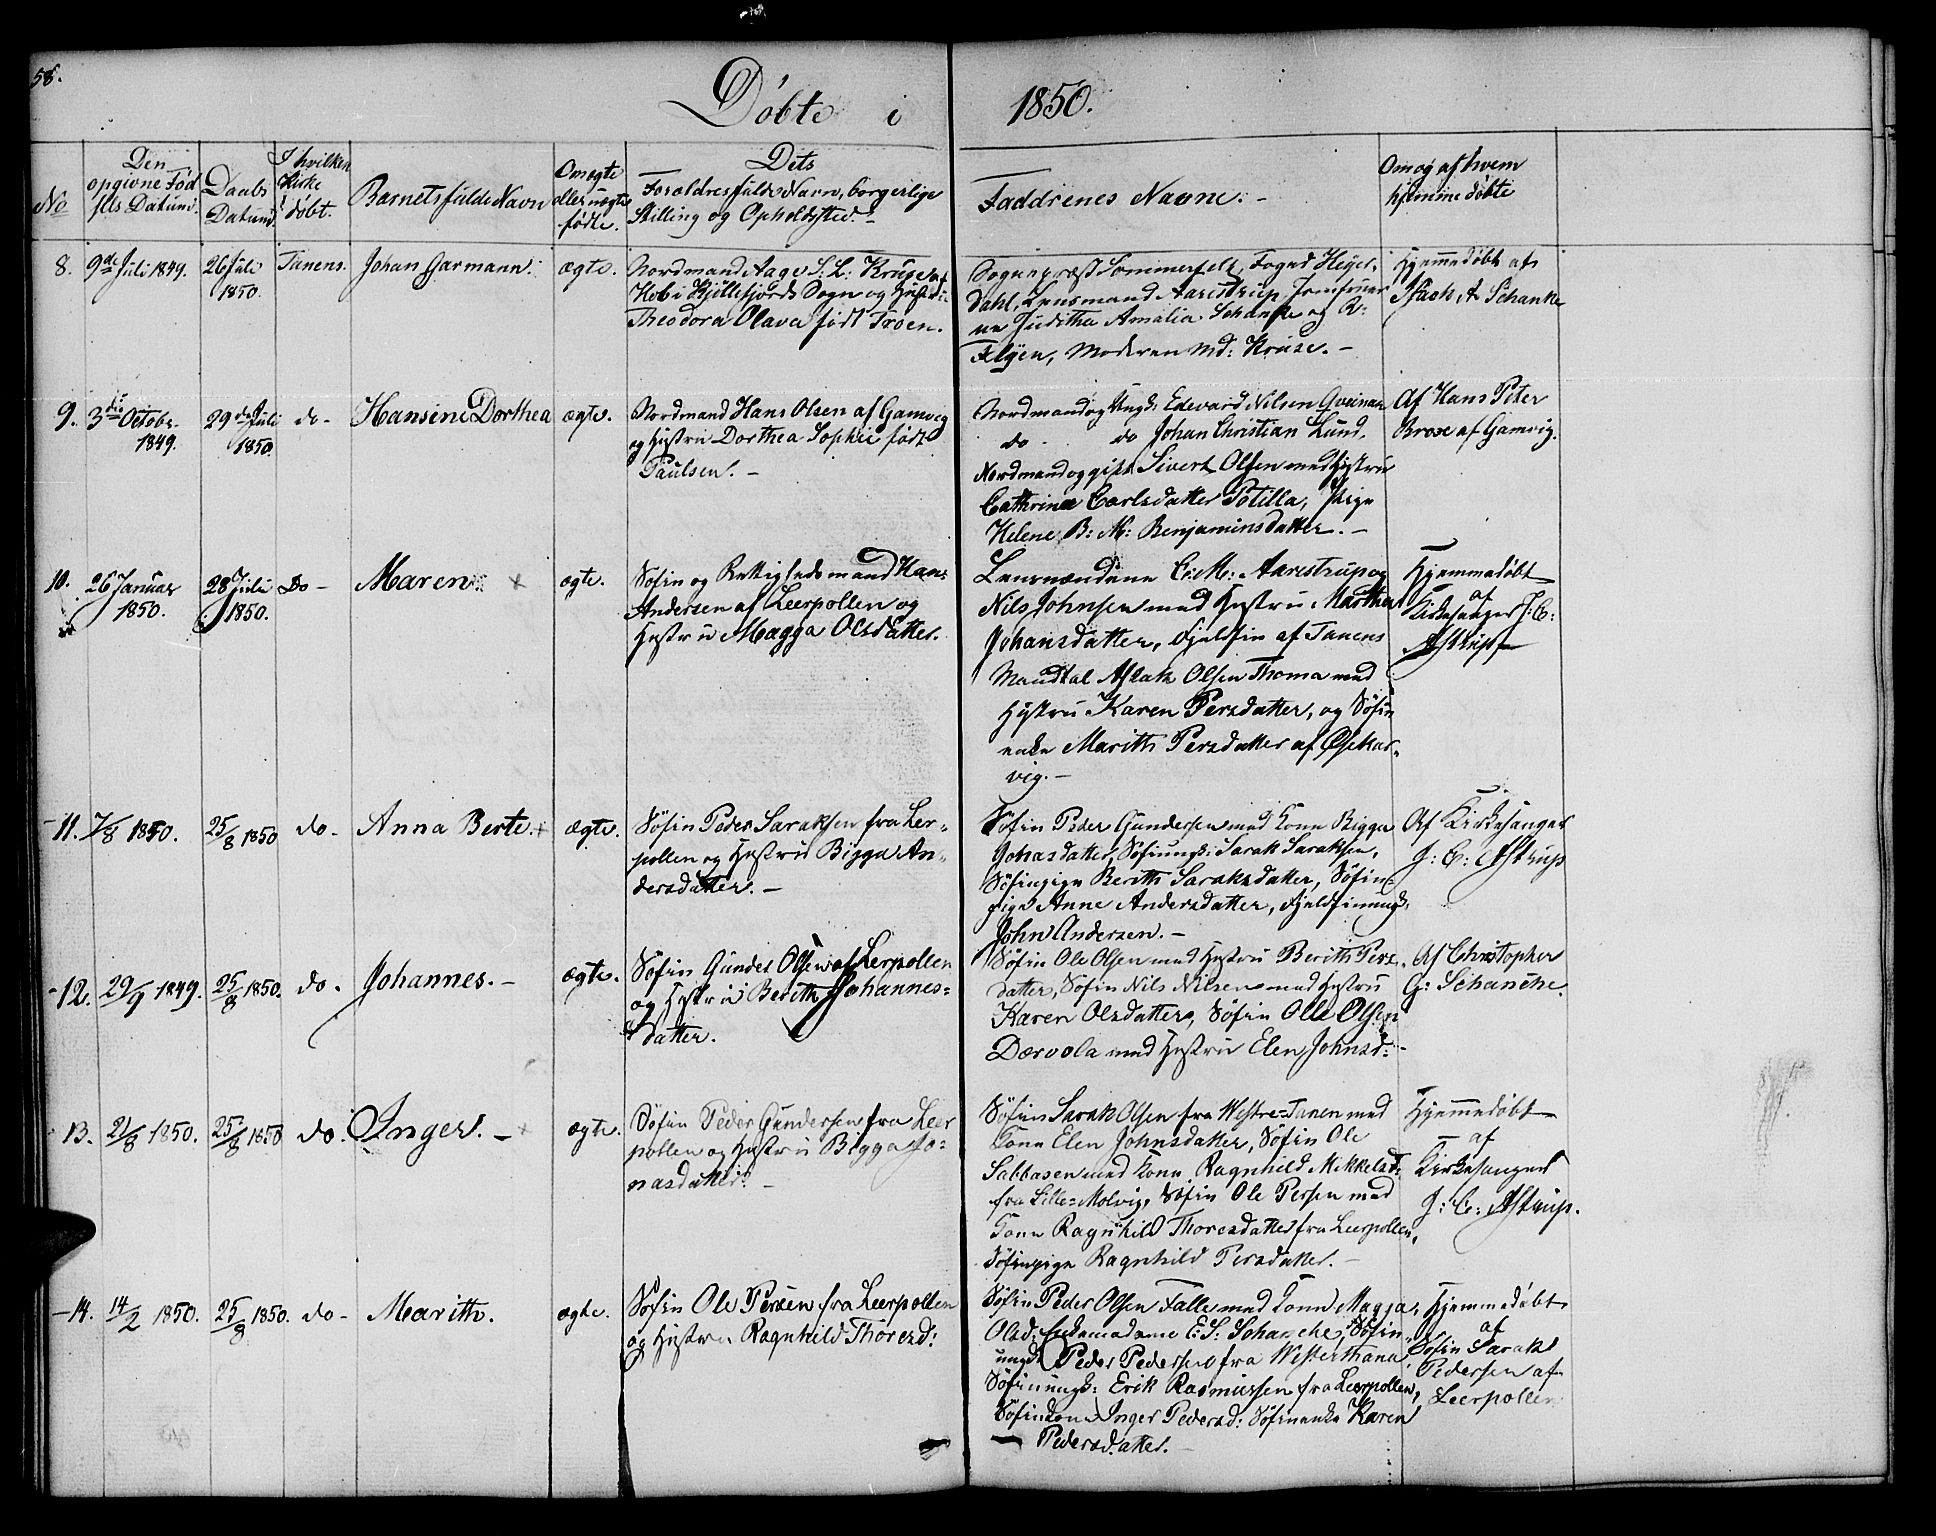 58.
Døbte i 1850.
No
Den opgivne Fødsels Datum.
Daabs Datum.
I hvilken Kirke døbt.
Barnets fulde Navn
Om ægte eller uægte fødte.
Dets Forældres fulde Navn, borgerlige Stilling og Opholdssted.
Faddrenes Navne. -
Om og af hvem hjemmedøbte
8. 9de Juli 1849. 26 Juli 1850. Tanens. Johan Garmann. ægte.
Nordmand Aage S: L: Kruse af
Kob i Kjøllefjords Sogn og Hustru
Theodora Olava født Troen.
Sognepræst Sommerfelt, Fogd Heyer-
dahl, Lensmand Aarestrup, Jomfruer
ne Juditha Amalia Schanke og R:
Feljen, Moderen Md: Kruse. -
Hjemmedøbt af
Isach A Schanke
9. 3die Octobr. 1849. 29de Juli 1850. do- Hansine Dorthea ægte.
Nordmand Hans Olsen af Gamvig
og Hustru Dorthea Sophie født
Paulsen. -
Nordmand og Ungk: Edevard Nilsen
do - do Johan Christian Lund,
Nordmand og gift Sivert Olsen med Hustru
Cathrina Carlsdatter Potilla, Pige
Helene B: M: Benjaminsdatter. -
Af Hans Peter
Broxe af Gamvig.
10. 26 Januar 1850. 28 Juli 1850. Do- Maren ægte.
Søfin og Rettighedsmand Hans
Andersen af Leerpollen og
Hustru Magga Olsdatter.
Lensmændene C: M: Aarestrup og
Nils Johnsen med Hustru Martha
Johansdatter, Fjeldfin af Tanens
Mandtal Aslak Olsen Thoma med
Hustru Karen Persdatter, og Søfin
enke Marith Persdatter af
vig. -
Hjemmedøbt
af
Kirkesanger J: C:
Astrup
11. 7/8 1850. 25/8 1850 do- Anna Berte. ægte.
Søfin Peder Saraksen fra Ler-
pollen og Hustru Bigga An-
dersdatter. -
Søfin Peder Gundersen med Kone Bigga
Johasdatter, Søfinungk: Sarak Saraksen,
Søfinpige Berith Saraksdatter, Søfin-
pige Anne Andersdatter, Fjeldfinungk:
John Andersen. -
Af Kirkesanger
J: C: Astrup
12. 29/9 1849. 25/8 1850. do. Johannes. - ægte.
Søfin Gunder Olsen af Leerpollen
og Hustru Berith Johannes-
datter.
Søfin Ole Olsen med Hustru Berith Pers-
datter, Søfin Nils Nilsen med Hustru
Karen Olsdatter, Søfin Ole Olsen
Dærvola med Hustru Elen Johnsd: -
Af Christopher
G: Schanche.
13. 21/8 1850. 25/8 1850 do. Inger. - ægte.
Søfin Peder Gundersen fra Leer
pollen og Hustru Bigga Jo-
nasdatter. -
Søfin Sarak Olsen fra Westre-Tanen med
Kone Elen Johnsdatter, Søfin Ole
Sabbasen med Kone Ragnhild Mikkelsd:
fra Lille-Molvig, Søfin Ole Persen med
Kone Ragnhild Thoresdatter fra Leerpollen,
Søfinpige Ragnhild Persdatter. -
Hjemmedøbt
af
Kirkesanger
J: C: Astrup.
14. 14/2 1850. 25/8 1850. do- Marith. ægte.
Søfin Ole Persen fra Leerpollen
og Hustru Ragnhild Thoresd:
Søfin Peder Olsen Falle med Kone Magga
Olsd: Enkemadame E: S: Schanche, Søfin
ungk: Peder Pedersen fra Westerthana,
Søfinungk: Erik Rasmussen fra Leerpollen,
Søfinkone Inger Pedersd: Søfinenke Karen
Pedersdatter. -
Hjemmedøbt
af
Søfin Sarak
Pedersen af
Leerpollen